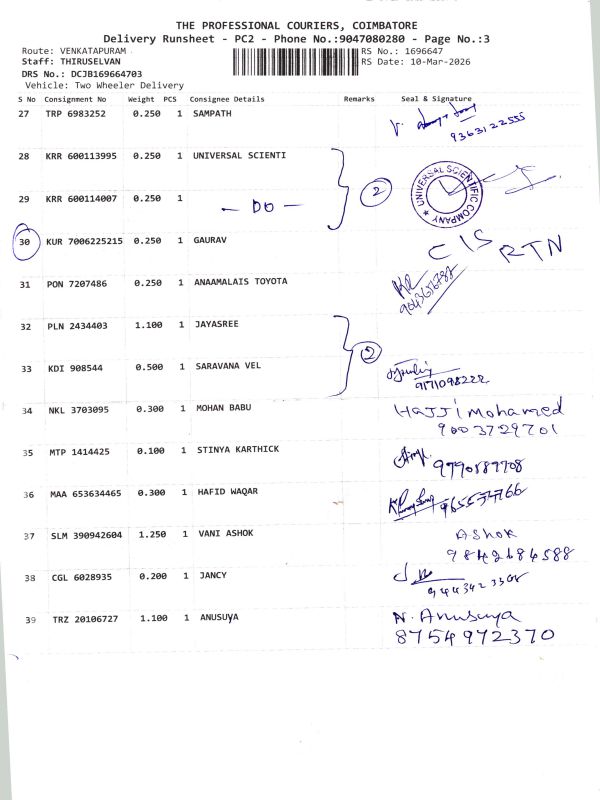 THE PROFESSIONAL COURIERS, COIMBATORE
Delivery Runsheet - PC2 - Phone No.:9047080280 - Page No.:3
Route: VENKATAPURAM RS No.: 1696647
Staff: THIRUSELVAN RS Date: 10-Mar-2026
DRS No.: DCJB169664703
Vehicle: Two Wheeler Delivery
S No Consignment No Weight PCS Consignee Details Remarks Seal & Signature
27 TRP 6983252 0.250 1 SAMPATH
9363122555
28 KRR 600113995 0.250 1 UNIVERSAL SCIENTI
2
UNIVERSAL SCIENTIFIC COMPANY
29 KRR 600114007 0.250 1 - DO -
30 KUR 7006225215 0.250 1 GAURAV C/S RTN
31 PON 7207486 0.250 1 ANAAMALAIS TOYOTA
32 PLN 2434403 1.100 1 JAYASREE
2
33 KDI 908544 0.500 1 SARAVANA VEL
9171098222
34 NKL 3703095 0.300 1 MOHAN BABU Hajji mohamed
9003729701
35 MTP 1414425 0.100 1 STINYA KARTHICK
9790187708
36 MAA 653634465 0.300 1 HAFID WAQAR
37 SLM 390942604 1.250 1 VANI ASHOK Ashok
9842184588
38 CGL 6028935 0.200 1 JANCY
39 TRZ 20106727 1.100 1 ANUSUYA N. Anusuya
8754972370